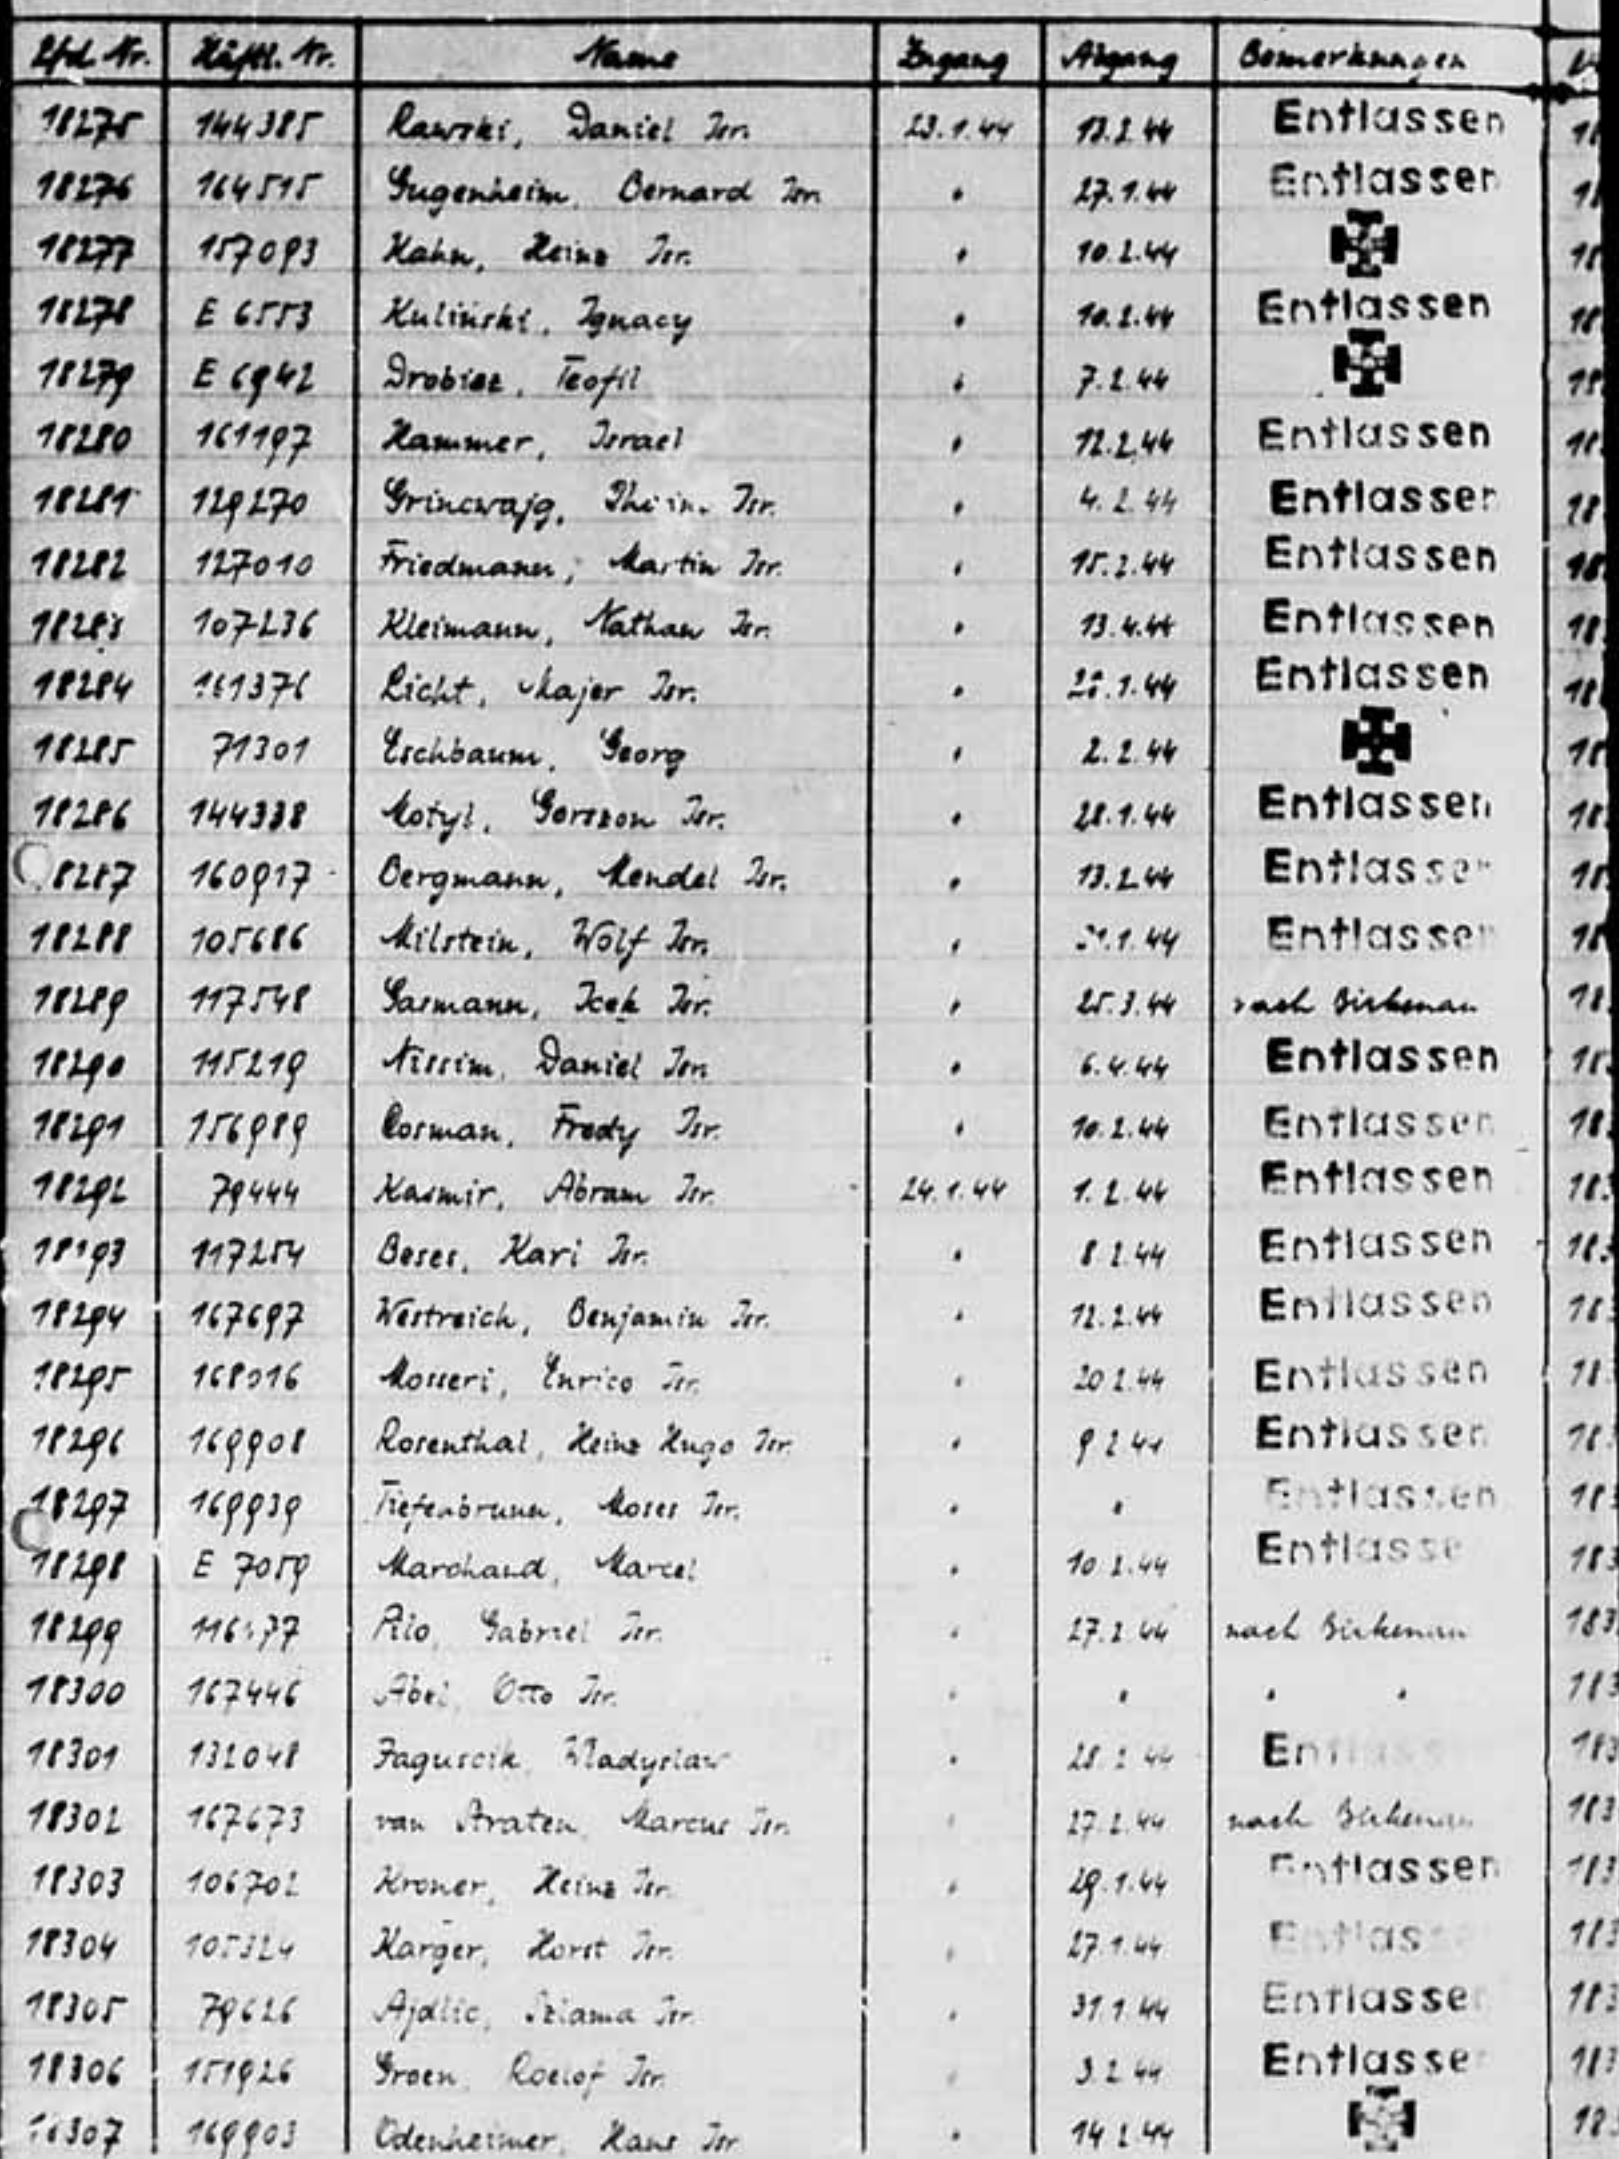 Lfd. Nr. Häftl. Nr. Name Zugang Abgang Bemerkungen
18275 144385 Rawski, Daniel Isr. 23.1.44 13.2.44 Entlassen
18276 164515 Gugenheim, Bernard Isr. " 27.1.44 Entlassen
18277 157093 Kahn, Heinz Isr. " 10.2.44
18278 E 6553 Kuliński, Ignacy " 10.2.44 Entlassen
18279 E 6942 Teofil " 7.2.44
18280 161197 Hammer, Israel " 12.2.44 Entlassen
18281 129270 Grincwajg, Isr. " 4.2.44 Entlassen
18282 127010 Friedmann, Martin Isr. " 15.2.44 Entlassen
18283 107236 Kleimann, Nathan Isr. " 13.4.44 Entlassen
18284 161376 Licht, Majer Isr. " Entlassen
18285 71301 Eschbaum, Georg " 2.2.44
18286 144338 Motyl, Gerszon Isr. " 28.1.44 Entlassen
18287 160917 Bergmann, Mendel Isr. " 13.2.44 Entlassen
18288 105686 Milstein, Wolf Isr. " 31.1.44 Entlassen
18289 117548 Gasmann, Icek Isr. " 25.3.44 nach Birkenau
18290 115219 Nissim, Daniel Isr. " 6.4.44 Entlassen
18291 156989 Cosman, Fredy Isr. " 10.2.44 Entlassen
18292 79444 Kasmir, Abram Isr. 24.1.44 1.2.44 Entlassen
18293 117254 Beses, Kari Isr. " 8.2.44 Entlassen
18294 167697 Westreich, Benjamin Isr. " 12.2.44 Entlassen
18295 168016 Mosseri, Enrico Isr. " 20.2.44 Entlassen
18296 169908 Rosenthal, Heinz Hugo Isr. " 9.2.44 Entlassen
18297 169939 Tiefenbrunn, Moses Isr. " " Entlassen
18298 E 7059 Marchand, Marcel " 10.2.44 Entlassen
18299 Pilo, Gabriel Isr. " 27.2.44 nach Birkenau
18300 167446 Abel, Otto Isr. " " " "
18301 132048 Wladyslaw " 28.2.44 Entlassen
18302 167673 van Straten, Marcus Isr. " 27.2.44 nach Birkenau
18303 106702 Kroner, Heinz Isr. " 29.1.44 Entlassen
18304 105324 Karger, Horst Isr. " 27.1.44 Entlassen
18305 79626 Ajdlic, Szlama Isr. " 31.1.44 Entlassen
18306 151926 Groen, Roelof Isr. " 3.2.44 Entlassen
18307 169903 Odenheimer, Hans Isr. " 14.2.44